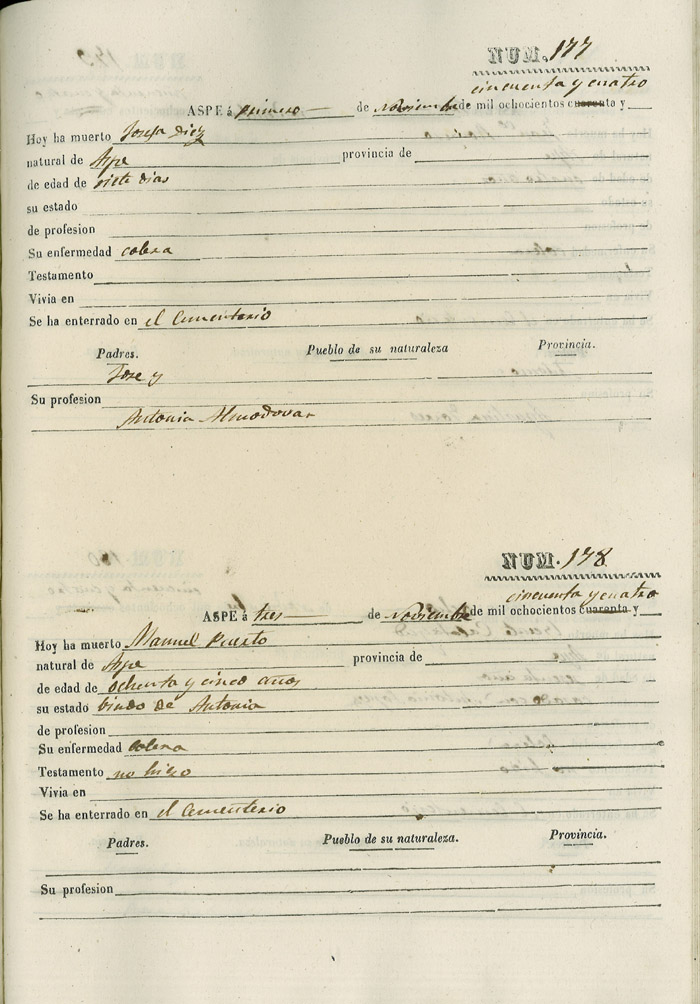 NUM. 177
cincuenta y cuatro
ASPE á primero de Noviembre de mil ochocientos cuarenta y
Hoy ha muerto Josefa Diez
natural de Aspe provincia de
de edad de siete dias
su estado
de profesion
Su enfermedad colera
Testamento
Vivia en
Se ha enterrado en el Cementerio
Padres. Pueblo de su naturaleza Provincia.
Jose y
Su profesion
Antonia Almodovar
NUM. 178
cincuenta y cuatro
ASPE á tres de Noviembre de mil ochocientos cuarenta y
Hoy ha muerto Manuel Puerto
natural de Aspe provincia de
de edad de ochenta y cinco años
su estado biudo de Antonia
de profesion
Su enfermedad colera
Testamento no hizo
Vivia en
Se ha enterrado en el Cementerio
Padres. Pueblo de su naturaleza. Provincia.
Su profesion